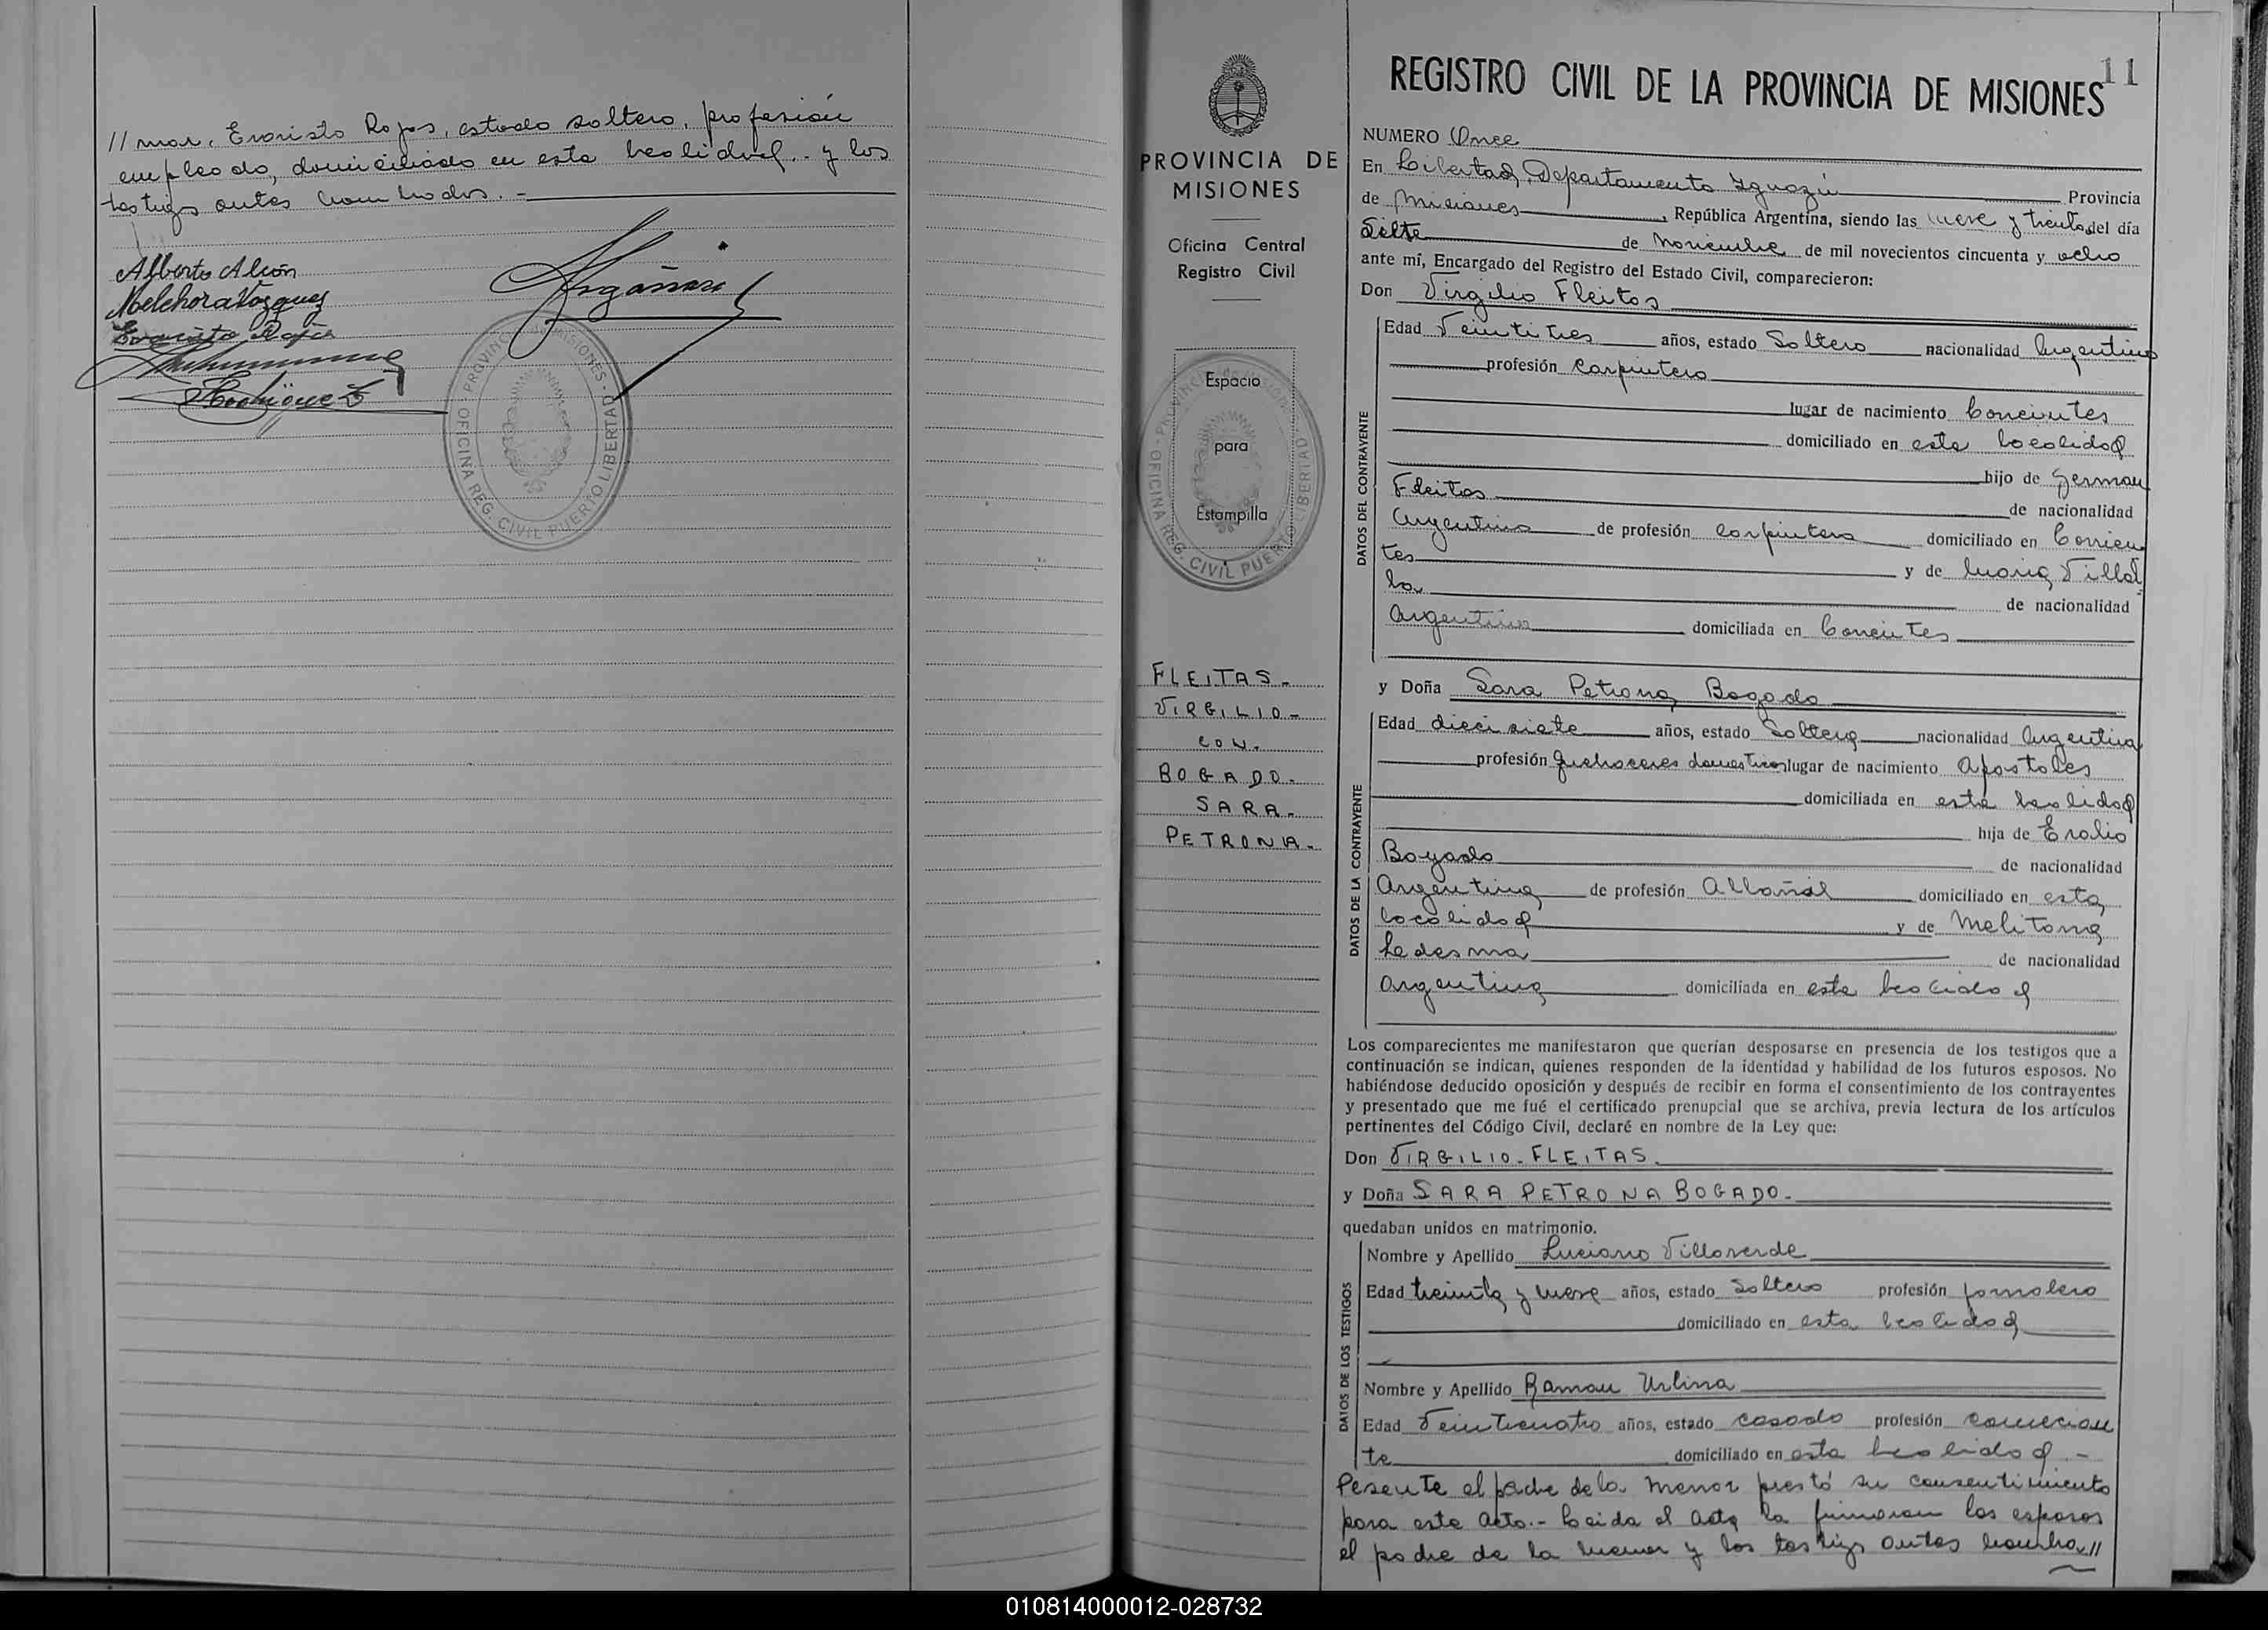 // nor, Evaristo Rojas, estado soltero, profesión
empleado, domiciliado en esta localidad. y los
testigos antes nombrados. -
Alberto Alcón
Melchora Vazquez
Evaristo Rojas
PROVINCIA DE MISIONES - OFICINA REG. CIVIL PUERTO LIBERTAD
PROVINCIA DE
MISIONES
Oficina Central
Registro Civil
Espacio
para
Estampilla
PROVINCIA DE MISIONES - OFICINA REG. CIVIL PUERTO LIBERTAD
FLEITAS -
VIRGILIO -
CON.
BOGADO.
SARA -
PETRONA -
11
REGISTRO CIVIL DE LA PROVINCIA DE MISIONES
NUMERO Once
En Libertad, Departamento Iguazú Provincia
de Misiones, República Argentina, siendo las nueve y treinta del día
Siete de Noviembre de mil novecientos cincuenta y ocho
ante mí, Encargado del Registro del Estado Civil, comparecieron:
Don Virgilio Fleitas
DATOS DEL CONTRAYENTE
Edad Veintitres años, estado Soltero nacionalidad Argentino
profesión Carpintero
lugar de nacimiento Corrientes
domiciliado en esta localidad
hijo de German
Fleitas de nacionalidad
Argentino de profesión carpintero domiciliado en Corrien
tes y de Maria Villal
ba de nacionalidad
Argentina domiciliada en Corrientes
y Doña Sara Petrona Bogado
DATOS DE LA CONTRAYENTE
Edad diecisiete años, estado Soltera nacionalidad Argentina
profesión Quehaceres domesticos lugar de nacimiento Apostoles
domiciliada en esta localidad
hija de Eralio
Bogado de nacionalidad
Argentina de profesión Albañil domiciliado en esta
localidad y de Melitona
Ledesma de nacionalidad
Argentina domiciliada en esta localidad
Los comparecientes me manifestaron que querían desposarse en presencia de los testigos que a
continuación se indican, quienes responden de la identidad y habilidad de los futuros esposos. No
habiéndose deducido oposición y después de recibir en forma el consentimiento de los contrayentes
y presentado que me fué el certificado prenupcial que se archiva, previa lectura de los artículos
pertinentes del Código Civil, declaré en nombre de la Ley que:
Don VIRGILIO - FLEITAS.
y Doña SARA PETRONA BOGADO.
quedaban unidos en matrimonio.
DATOS DE LOS TESTIGOS
Nombre y Apellido Luciano Villaverde
Edad treinta y nueve años, estado Soltero profesión jornalero
domiciliado en esta localidad
Nombre y Apellido Ramon Urbina
Edad Veinticuatro años, estado casado profesión comercian
te domiciliado en esta localidad. -
Pesente el padre de la menor prestó su consentimiento
para este acto. - Leida el acta la firmaron los esposos
el padre de la menor y los testigs antes nombra //
010814000012-028732